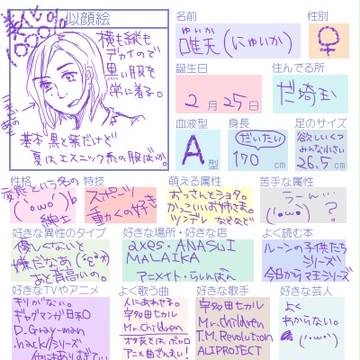 美化
100%
似顔絵
横も縦も
デカイので
黒い服を
常に着る。
基本黒と茶だけど
夏はエスニック系の服ばか。
名前
ゆいか
唯天(にゅいか)
性別
♀
誕生日
2月25日
住んでる所
だ埼玉
血液型
A型
身長
だいたい
170cm
足のサイズ
欲しいくつ
みんな小さい
26.5cm
性格
変態という名の
(・ω・)
紳士
特技
スポーツ
動くの好き
萌える属性
おっさんとショタ。
かっこいいお姉さま。
ツンデレ などなど
苦手な属性
うーん…
(・ω・)?
好きな異性のタイプ
優しくないと
嫌だなぁ
あと背高いの。
好きな場所・好きな店
axes・ANASUI
MALAIKA
アニメイト・らしんばん
よく読む本
ルーンの子供たち
シリーズ
今日からマ王シリーズ
好きなTVやアニメ
キリがない。
ギャグマンガ日和
D.Gray-man
.hackシリーズ
よく歌う曲
人にあわせる。
宇多田ヒカル
Mr.Children
アニメ曲さえも!
好きな歌手
宇多田ヒカル
Mr.Children
T.M.Revolution
ALI PROJECT
好きな芸人
よく
わからない。
(・ω・)